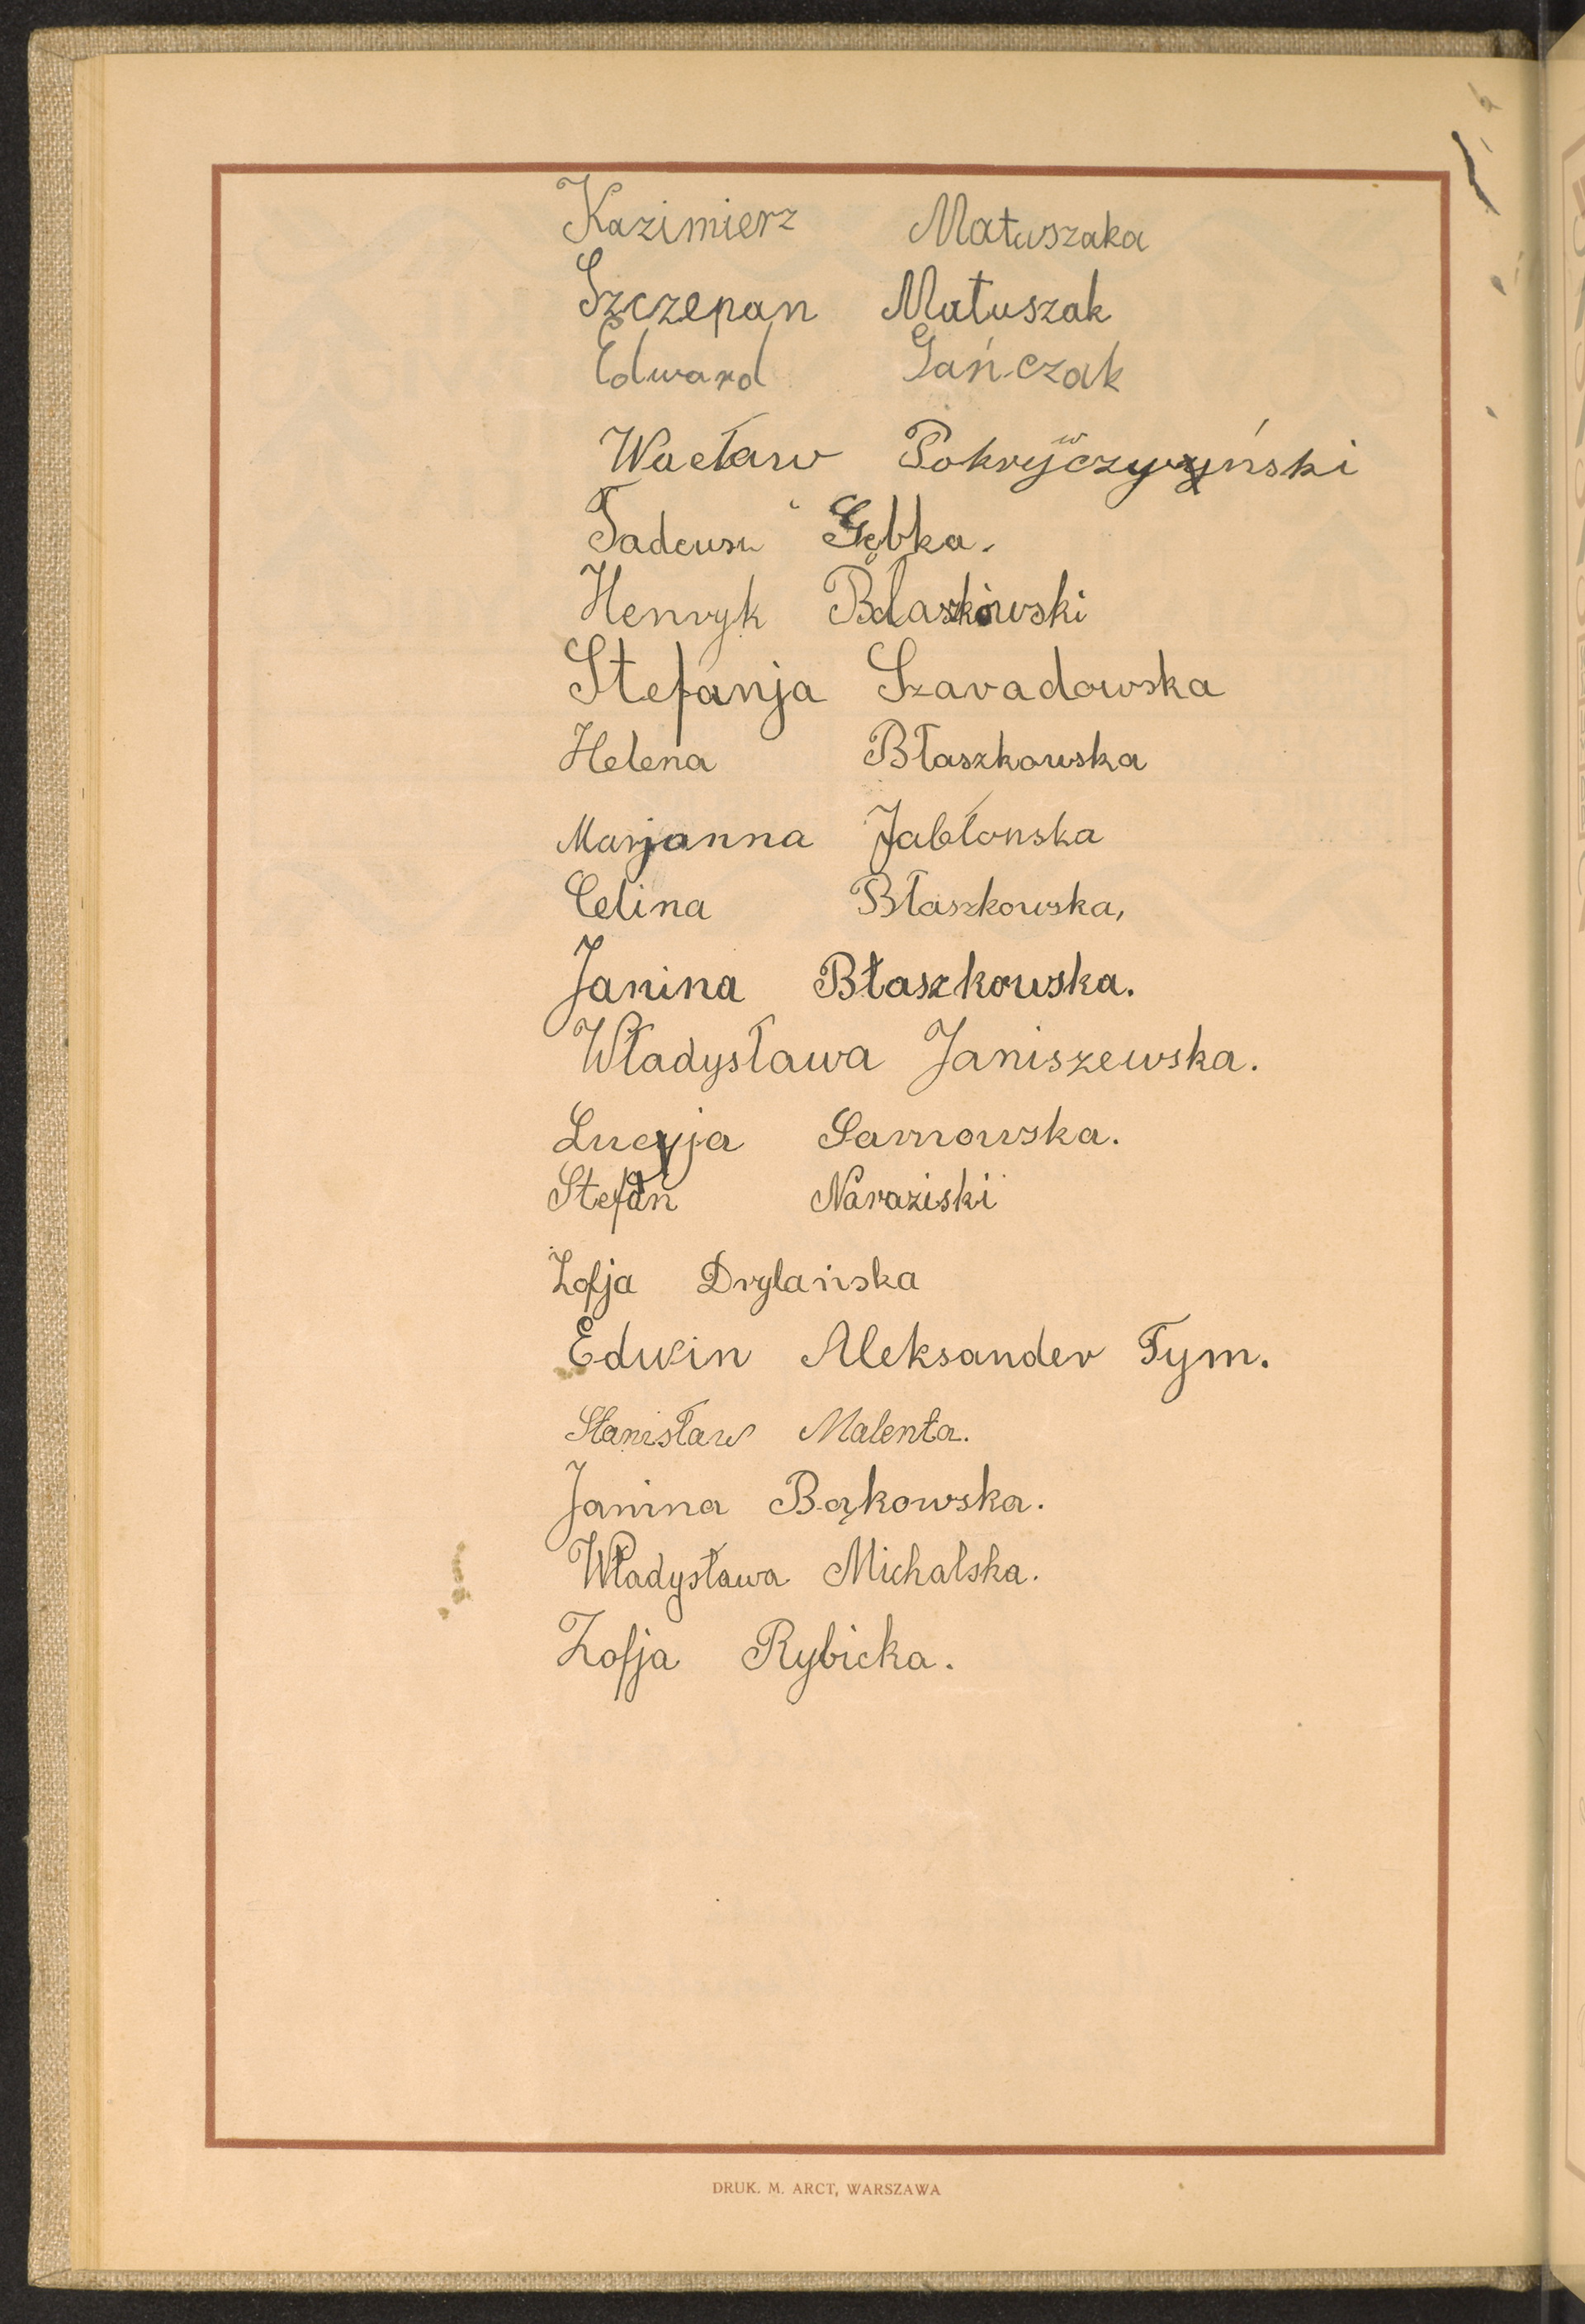 Kazimierz Matuszaka
Szczepan Matuszak
Edward Gańczak
Wacław
Tadeusz Gębka.
Henryk Błaszkowski
Stefanja Szaradowska
Helena Błaszkowska
Marjanna Jabłonska
Celina Błaszkowska,
Janina Błaszkowska.
Władysława Janiszewska.
Lucyja Sarnowska.
Stefan Naraziski
Zofja Drylańska
Edwin Aleksander Tym.
Stanisław Malenta.
Janina Bąkowska.
Władysława Michalska.
Zofja Rybicka.
DRUK. M. ARCT, WARSZAWA